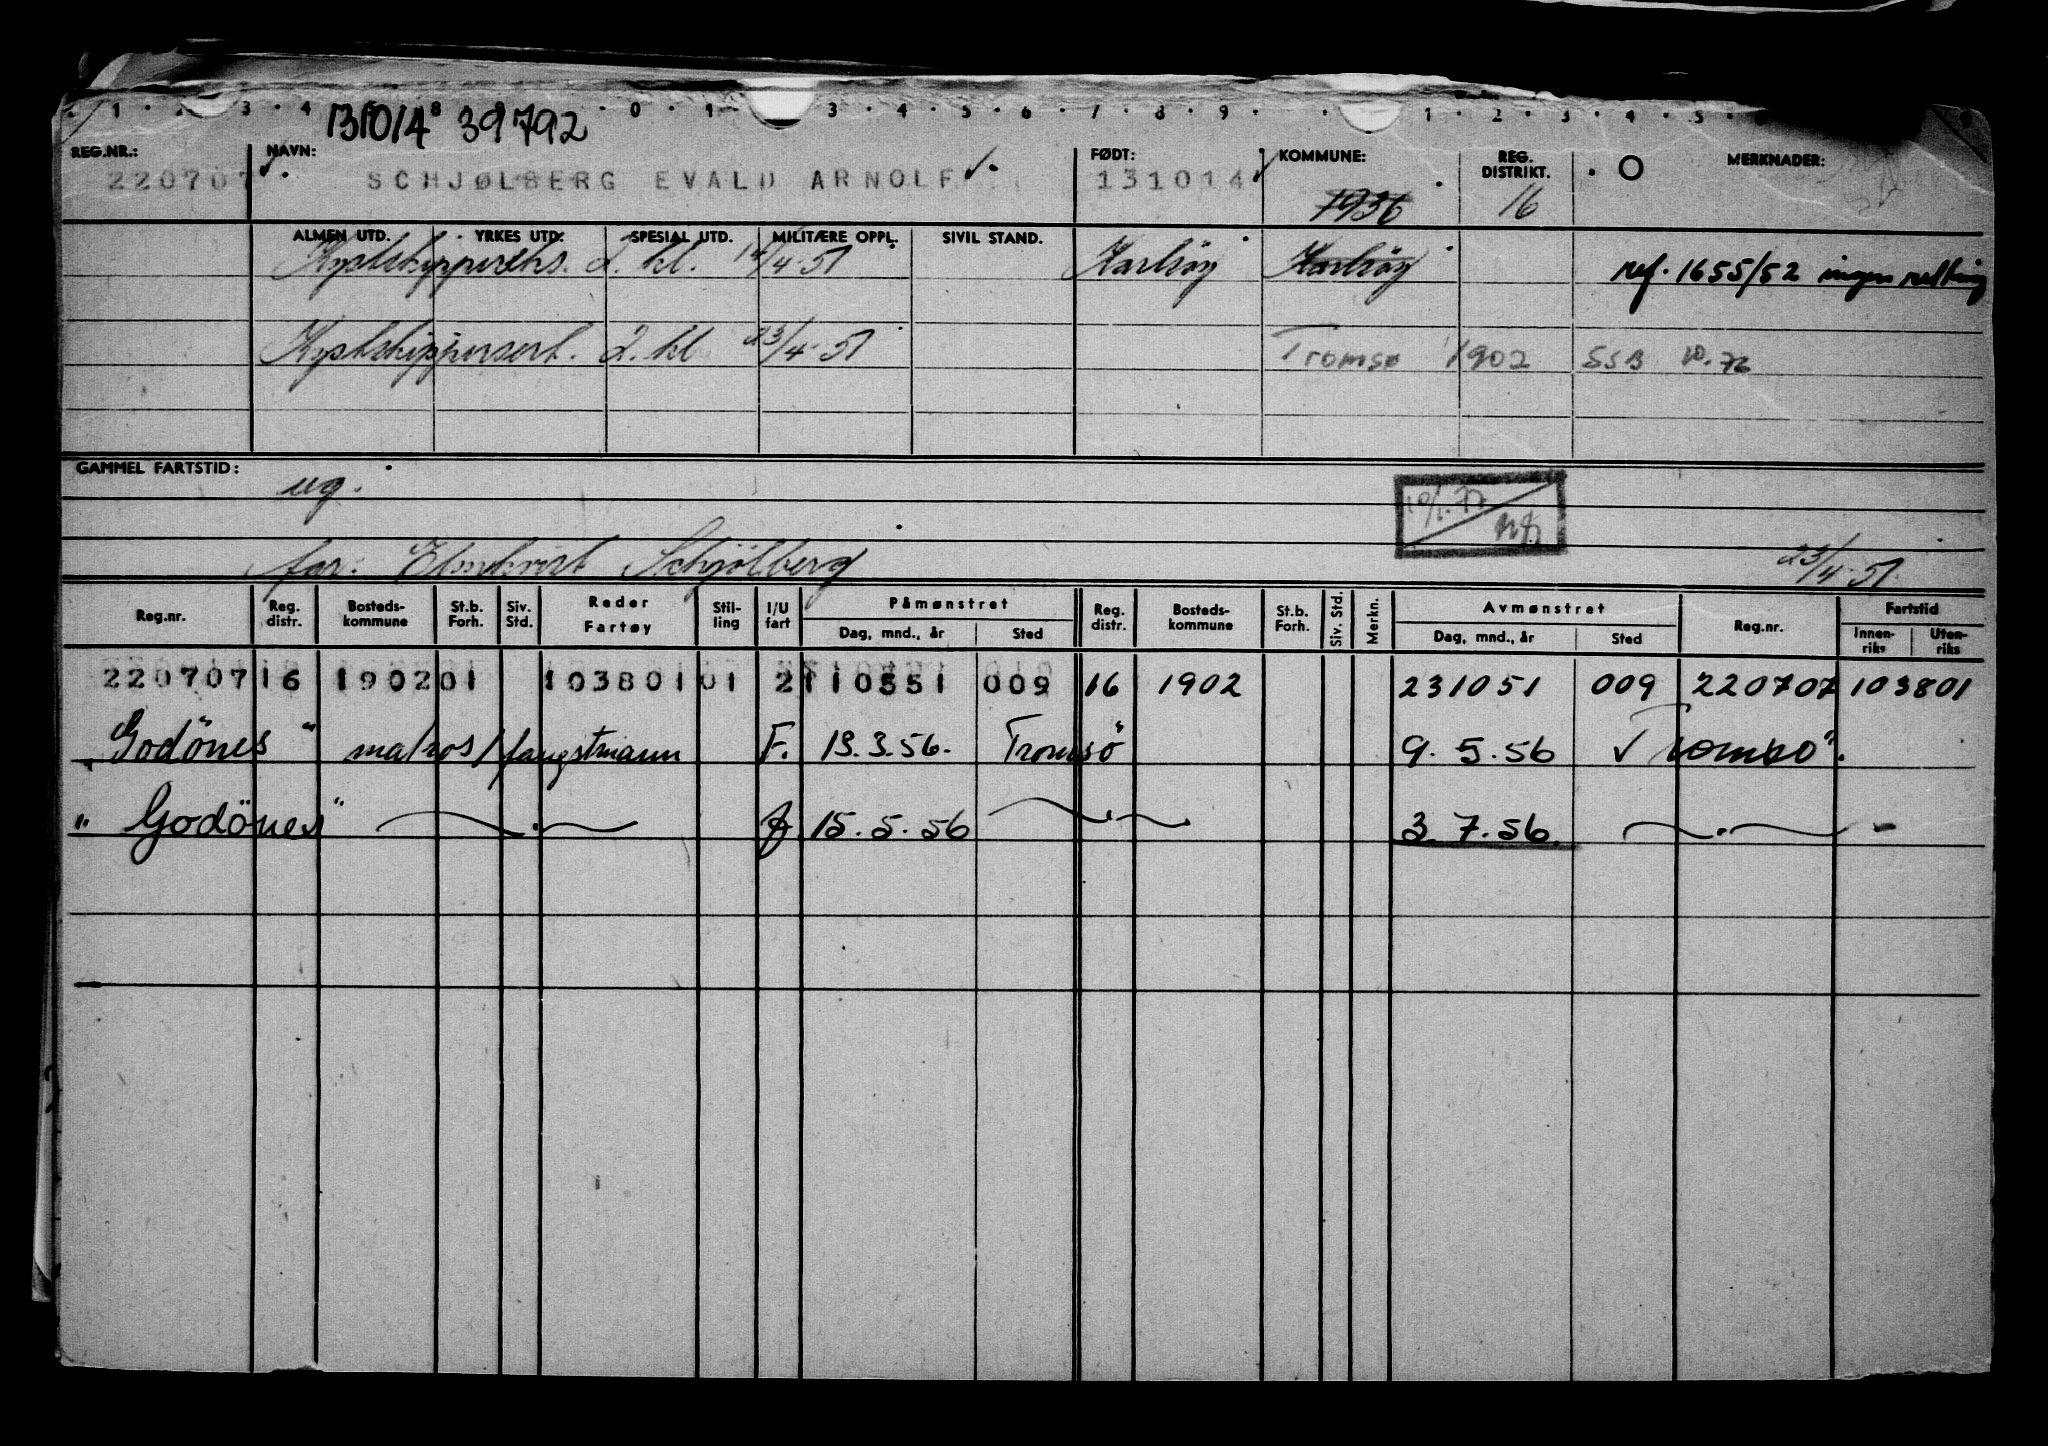 131014 39792
REG.NR.: NAVN: FØDT: KOMMUNE: REG. DISTRIKT. MERKNADER:
220707 SCHJØLBERG EVALD ARNOLF 131014 1936 16
ALMEN UTD. YRKES UTD. SPESIAL UTD. MILITÆRE OPPL. SIVIL STAND.
Kystskippereks. 2. kl. 14/4-51 Karlsöy Karlsöy ref. 1655/52 ingen retting
Kystskippersert. 2. kl 23/4-51 Tromsø 1902 SSB 10.76
GAMMEL FARTSTID:
ug.
far: Schjölberg 23/4-51.
Reg.nr. Reg. distr. Bosteds-kommune St.b. Forh. Siv. Std. Reder Fartøy Stil-ling I/U fart Påmønstret Dag, mnd., år Sted Reg. distr. Bosteds-kommune St.b. Forh. Siv. Std. Merkn. Avmønstret Dag, mnd., år Sted Reg.nr. Fartstid Innen-riks Uten-riks
220707 16 1902 01 103801 01 2 110551 009 16 1902 231051 009 220707 103801
"Godönes" matros/fangstmann F. 13.3.56. Tromsö 9.5.56 Tromsö.
"Godönes" f 15.5.56 3.7.56.